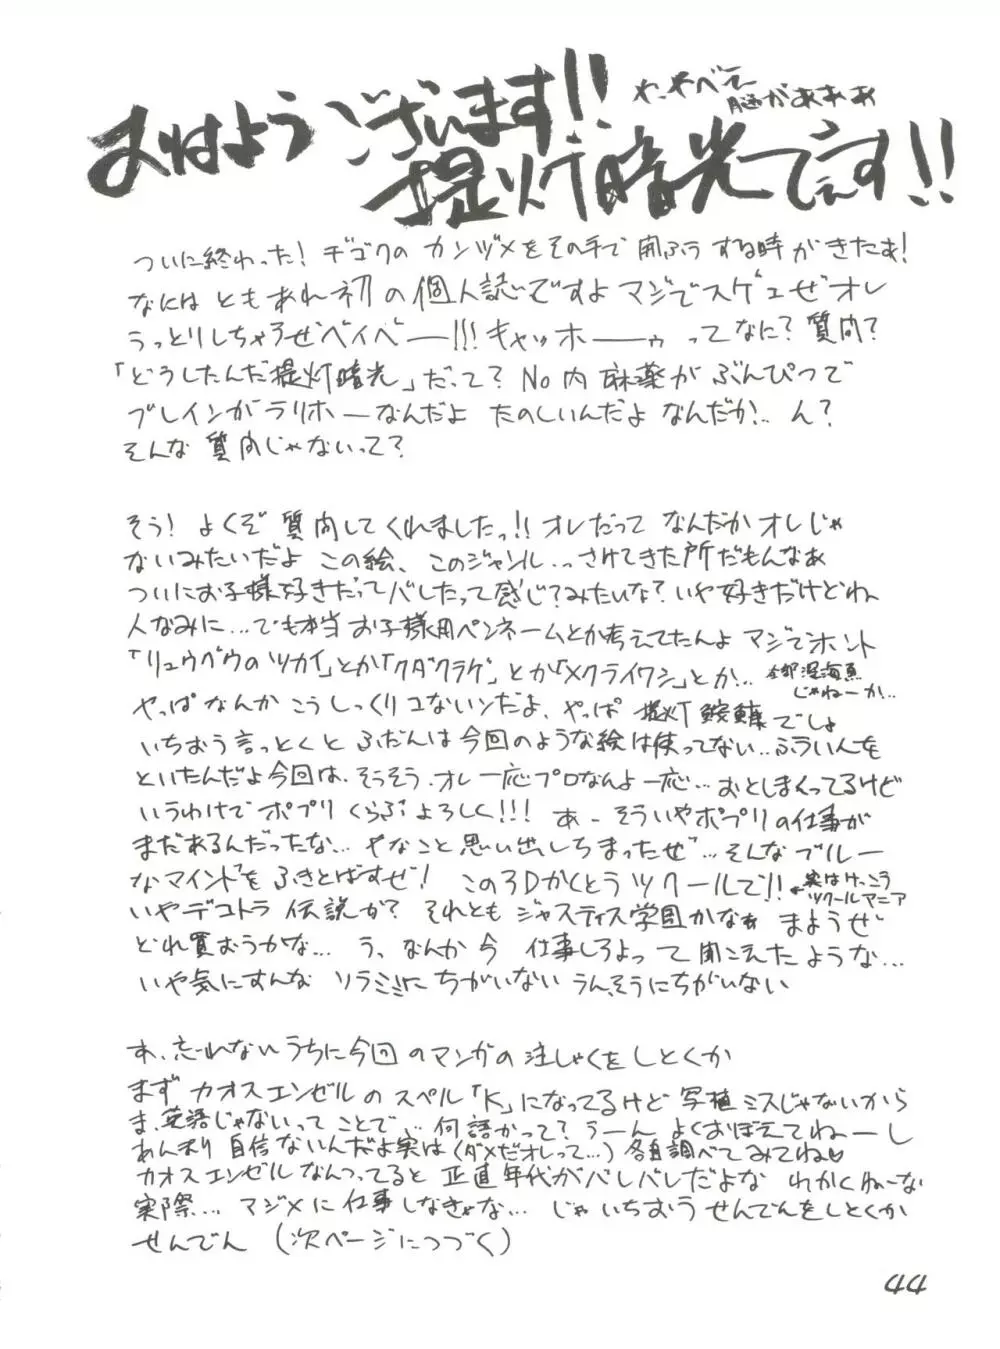 おはようございます!!
わ、やべえ
脳があああ
提灯暗光でぇす!!
ついに終わった! ヂゴクのカンヅメをその手で開ふうする時がきたぁ!
なにはともあれ初の個人誌ですよマジでスゲェぜオレ
うっとりしちゃうぜベイベー!!! キャッホーゥってなに? 質問?
「どうしたんだ提灯暗光」だって? No内麻薬がぶんぴつで
ブレインがラリホーなんだよ たのしいんだよ なんだか!.. ん?
そんな質問じゃないって?
そう! よくぞ質問してくれましたっ!! オレだってなんだかオレじゃ
ないみたいだよ この絵、このジャンル..さけてきた所だもんなあ
ついにお子様好きだってバレたって感じ?みたいな? いや好きだけどね
人なみに...でも本当お子様用ペンネームとか考えてたんよ マジでホント
「リュウグウのツカイ」とか「クダクラゲ」とか「メクライワシ」とか...
全部深海魚
じゃねーか...
やっぱなんかこうしっくりコないンだよ、やっぱ提灯鮟鱇でしょ
いちおう言っとくと ふだんは今回のような絵は使ってない..ふういんを
といたんだよ今回は、そうそう、オレ一応プロなんよ一応...おとしまくってるけど
いうわけでポプリくらぶよろしく!!! あーそういやポプリの仕事が
まだあるんだったな... ヤなこと思い出しちまったぜ...そんなブルー
なマインドをふきとばすぜ! この3Dかくとうツクールで!!
←実はけっこう
ツクールマニア
いやデコトラ伝説か? それともジャスティス学園かなぁ まようぜ
どれ買おうかな... う、なんか今 仕事しろよって聞こえたような...
いや気にすんな ソラミミにちがいない うん、そうにちがいない
オ、忘れないうちに今回のマンガの注しゃくをしとくか
まず カオスエンゼルのスペル「K」になってるけど 写植ミスじゃないから
ま、英語じゃないってことで... 何語かって? うーん よくおぼえてねーし
あんまり自信ないんだよ実は(ダメだオレって...) 各自調べてみてね♡
カオスエンゼルなんつってると 正直年代がバレバレだよな わかくねーな
実際... マジメに仕事しなきゃな... じゃ いちおうせんでんをしとくか
せんでん (次ページにつづく)
44